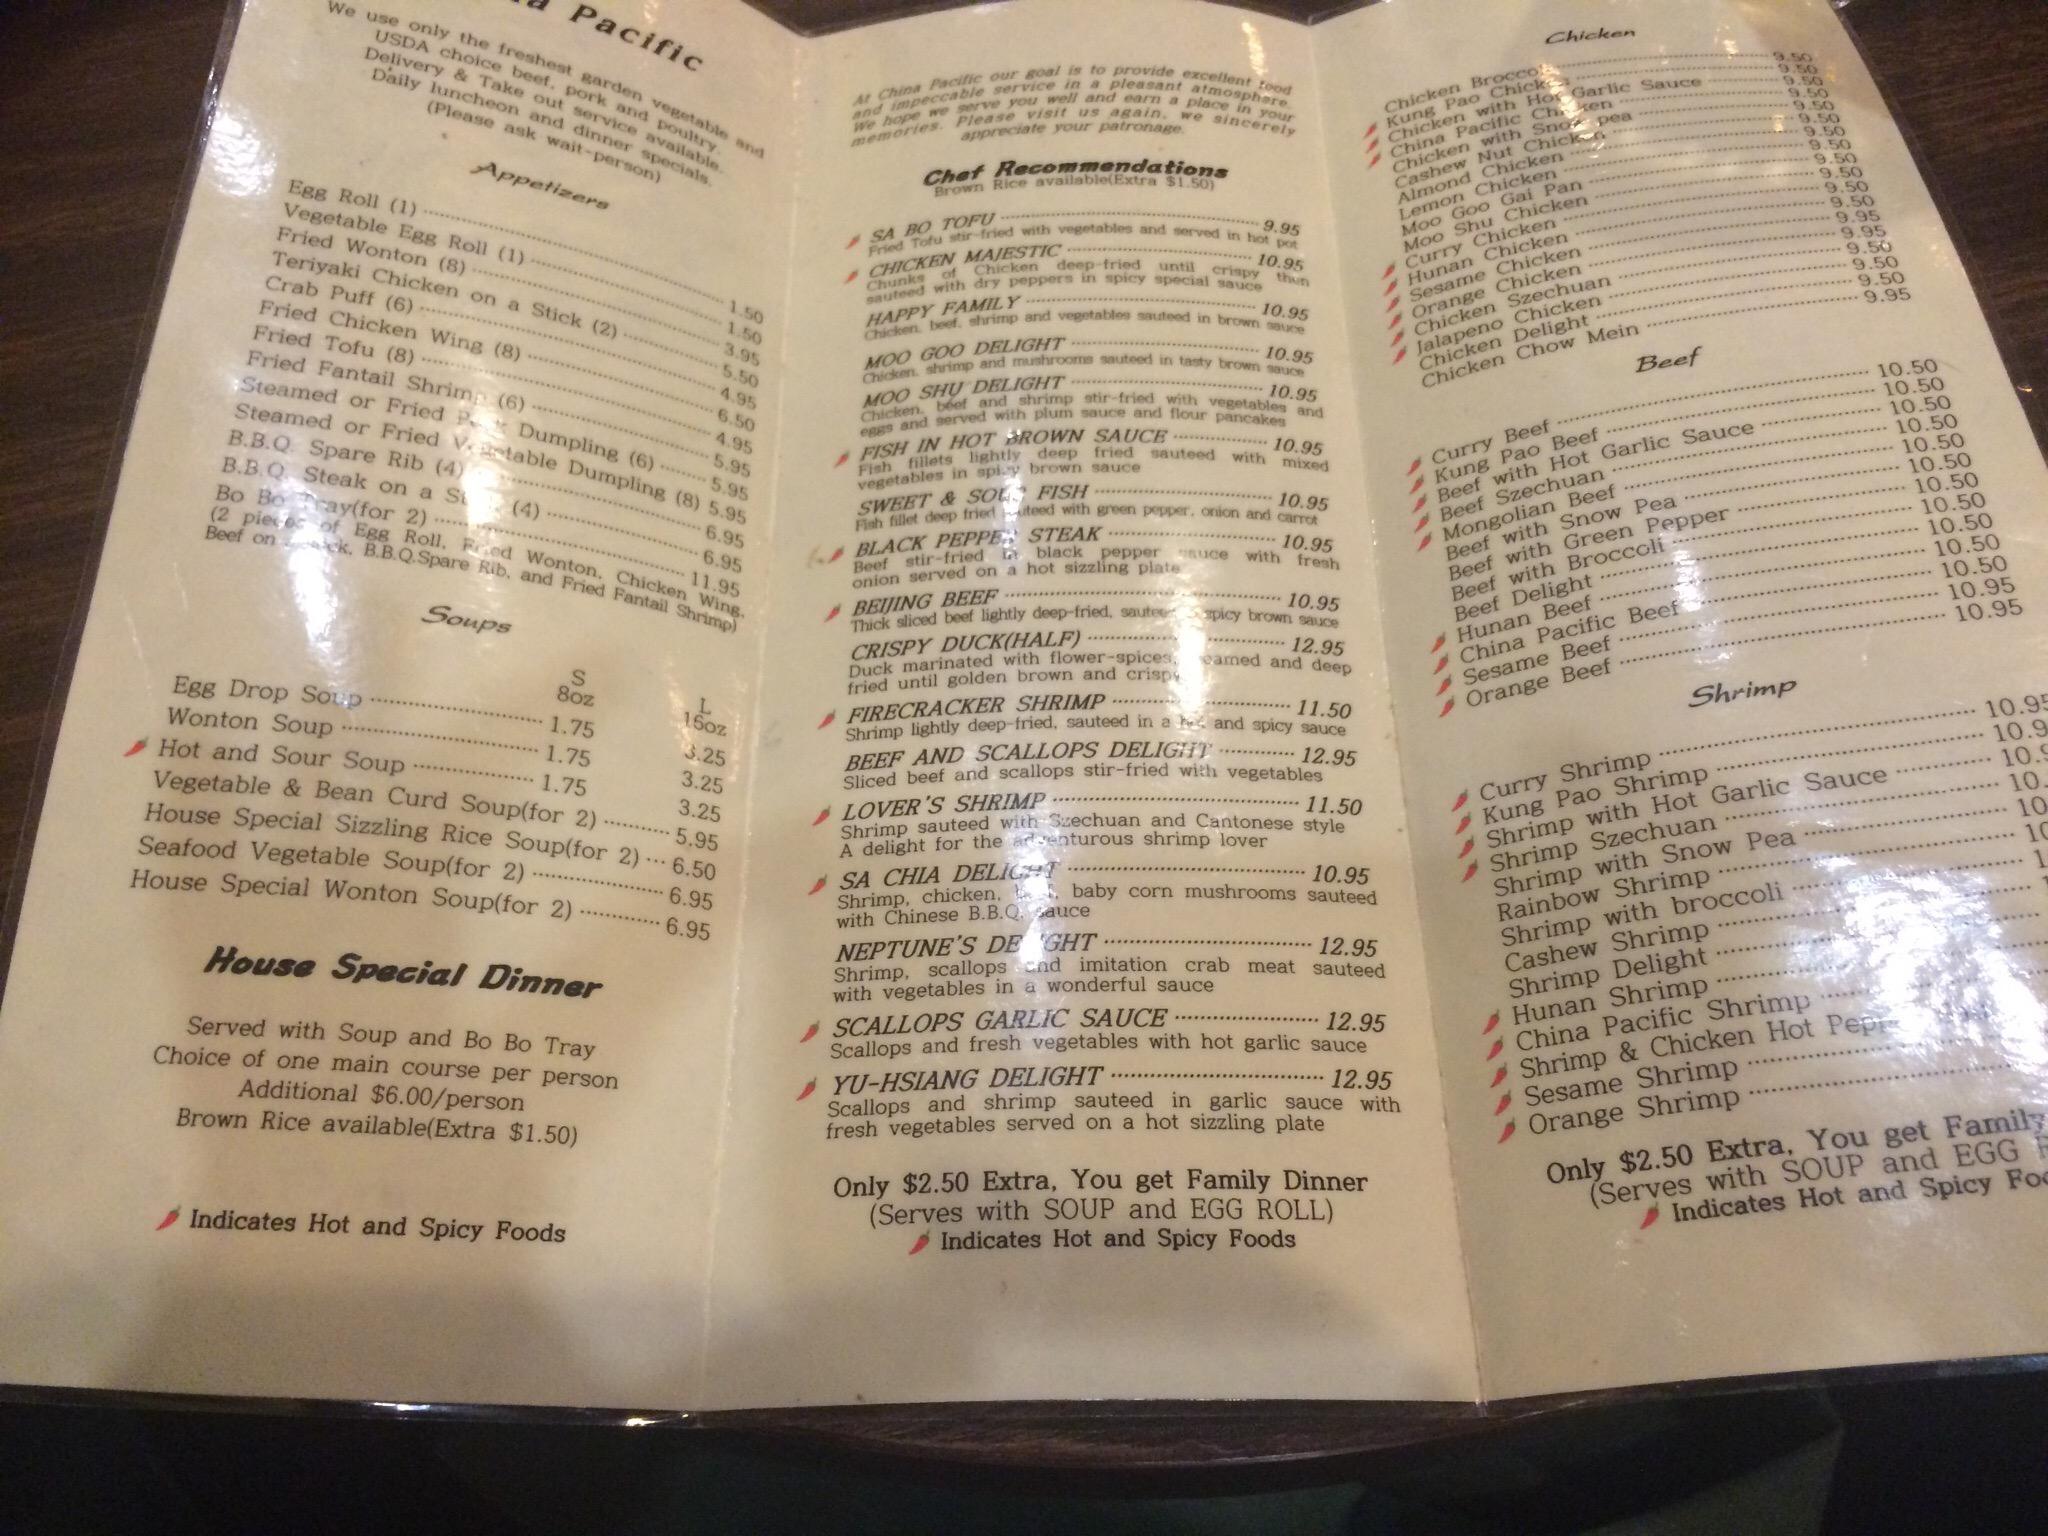 Pacific
We use only the freshest garden vegetable and
USDA choice beef, pork and poultry.
Delivery & Take out service available.
Daily luncheon and dinner specials.
(Please ask wait-person)
Appetizers
Egg Roll (1) 1.50
Vegetable Egg Roll (1) 1.50
Fried Wonton (8) 3.95
Teriyaki Chicken on a Stick (2) 5.50
Crab Puff (6) 4.95
Fried Chicken Wing (8) 6.50
Fried Tofu (8) 4.95
Fried Fantail Shrimp (6) 5.95
Steamed or Fried Pork Dumpling (6) 5.95
Steamed or Fried Vegetable Dumpling (8) 5.95
B.B.Q. Spare Rib (4) 6.95
B.B.Q. Steak on a Stick (4) 6.95
Bo Bo Tray(for 2) 11.95
(2 pieces of Egg Roll, Fried Wonton, Chicken Wing,
Beef on Stick, B.B.Q.Spare Rib, and Fried Fantail Shrimp)
Soups
S L
8oz 16oz
Egg Drop Soup 1.75 3.25
Wonton Soup 1.75 3.25
Hot and Sour Soup 1.75 3.25
Vegetable & Bean Curd Soup(for 2) 5.95
House Special Sizzling Rice Soup(for 2) 6.50
Seafood Vegetable Soup(for 2) 6.95
House Special Wonton Soup(for 2) 6.95
House Special Dinner
Served with Soup and Bo Bo Tray
Choice of one main course per person
Additional $6.00/person
Brown Rice available(Extra $1.50)
Indicates Hot and Spicy Foods
At China Pacific our goal is to provide excellent food
and impeccable service in a pleasant atmosphere.
We hope we serve you well and earn a place in your
memories. Please visit us again, we sincerely
appreciate your patronage.
Chef Recommendations
Brown Rice available(Extra $1.50)
SA BO TOFU 9.95
Fried Tofu stir-fried with vegetables and served in hot pot
CHICKEN MAJESTIC 10.95
Chunks of Chicken deep-fried until crispy then
sauteed with dry peppers in spicy special sauce
HAPPY FAMILY 10.95
Chicken, beef, shrimp and vegetables sauteed in brown sauce
MOO GOO DELIGHT 10.95
Chicken, shrimp and mushrooms sauteed in tasty brown sauce
MOO SHU DELIGHT 10.95
Chicken, beef and shrimp stir-fried with vegetables and
eggs and served with plum sauce and flour pancakes
FISH IN HOT BROWN SAUCE 10.95
Fish fillets lightly deep fried sauteed with mixed
vegetables in spicy brown sauce
SWEET & SOUR FISH 10.95
Fish fillet deep fried sauteed with green pepper, onion and carrot
BLACK PEPPER STEAK 10.95
Beef stir-fried in black pepper sauce with fresh
onion served on a hot sizzling plate
BEIJING BEEF 10.95
Thick sliced beef lightly deep-fried, sauteed spicy brown sauce
CRISPY DUCK(HALF) 12.95
Duck marinated with flower-spices, steamed and deep
fried until golden brown and crispy
FIRECRACKER SHRIMP 11.50
Shrimp lightly deep-fried, sauteed in a hot and spicy sauce
BEEF AND SCALLOPS DELIGHT 12.95
Sliced beef and scallops stir-fried with vegetables
LOVER'S SHRIMP 11.50
Shrimp sauteed with Szechuan and Cantonese style
A delight for the adventurous shrimp lover
SA CHIA DELIGHT 10.95
Shrimp, chicken, beef, baby corn mushrooms sauteed
with Chinese B.B.Q. sauce
NEPTUNE'S DELIGHT 12.95
Shrimp, scallops and imitation crab meat sauteed
with vegetables in a wonderful sauce
SCALLOPS GARLIC SAUCE 12.95
Scallops and fresh vegetables with hot garlic sauce
YU-HSIANG DELIGHT 12.95
Scallops and shrimp sauteed in garlic sauce with
fresh vegetables served on a hot sizzling plate
Only $2.50 Extra, You get Family Dinner
(Serves with SOUP and EGG ROLL)
Indicates Hot and Spicy Foods
Chicken
Chicken Broccoli 9.50
Kung Pao Chicken 9.50
Chicken with Hot Garlic Sauce 9.50
China Pacific Chicken 9.50
Chicken with Snow pea 9.50
Cashew Nut Chicken 9.50
Almond Chicken 9.50
Lemon Chicken 9.50
Moo Goo Gai Pan 9.50
Moo Shu Chicken 9.50
Curry Chicken 9.50
Hunan Chicken 9.50
Sesame Chicken 9.95
Orange Chicken 9.95
Chicken Szechuan 9.50
Jalapeno Chicken 9.50
Chicken Delight 9.50
Chicken Chow Mein 9.95
Beef
Curry Beef 10.50
Kung Pao Beef 10.50
Beef with Hot Garlic Sauce 10.50
Beef Szechuan 10.50
Mongolian Beef 10.50
Beef with Snow Pea 10.50
Beef with Green Pepper 10.50
Beef with Broccoli 10.50
Beef Delight 10.50
Hunan Beef 10.50
China Pacific Beef 10.50
Sesame Beef 10.95
Orange Beef 10.95
Shrimp
Curry Shrimp 10.95
Kung Pao Shrimp 10.9
Shrimp with Hot Garlic Sauce 10.9
Shrimp Szechuan 10.
Shrimp with Snow Pea 10
Rainbow Shrimp 10
Shrimp with broccoli 1
Cashew Shrimp
Shrimp Delight
Hunan Shrimp
China Pacific Shrimp
Shrimp & Chicken Hot
Sesame Shrimp
Orange Shrimp
Only $2.50 Extra, You get Family
(Serves with SOUP and EGG
Indicates Hot and Spicy